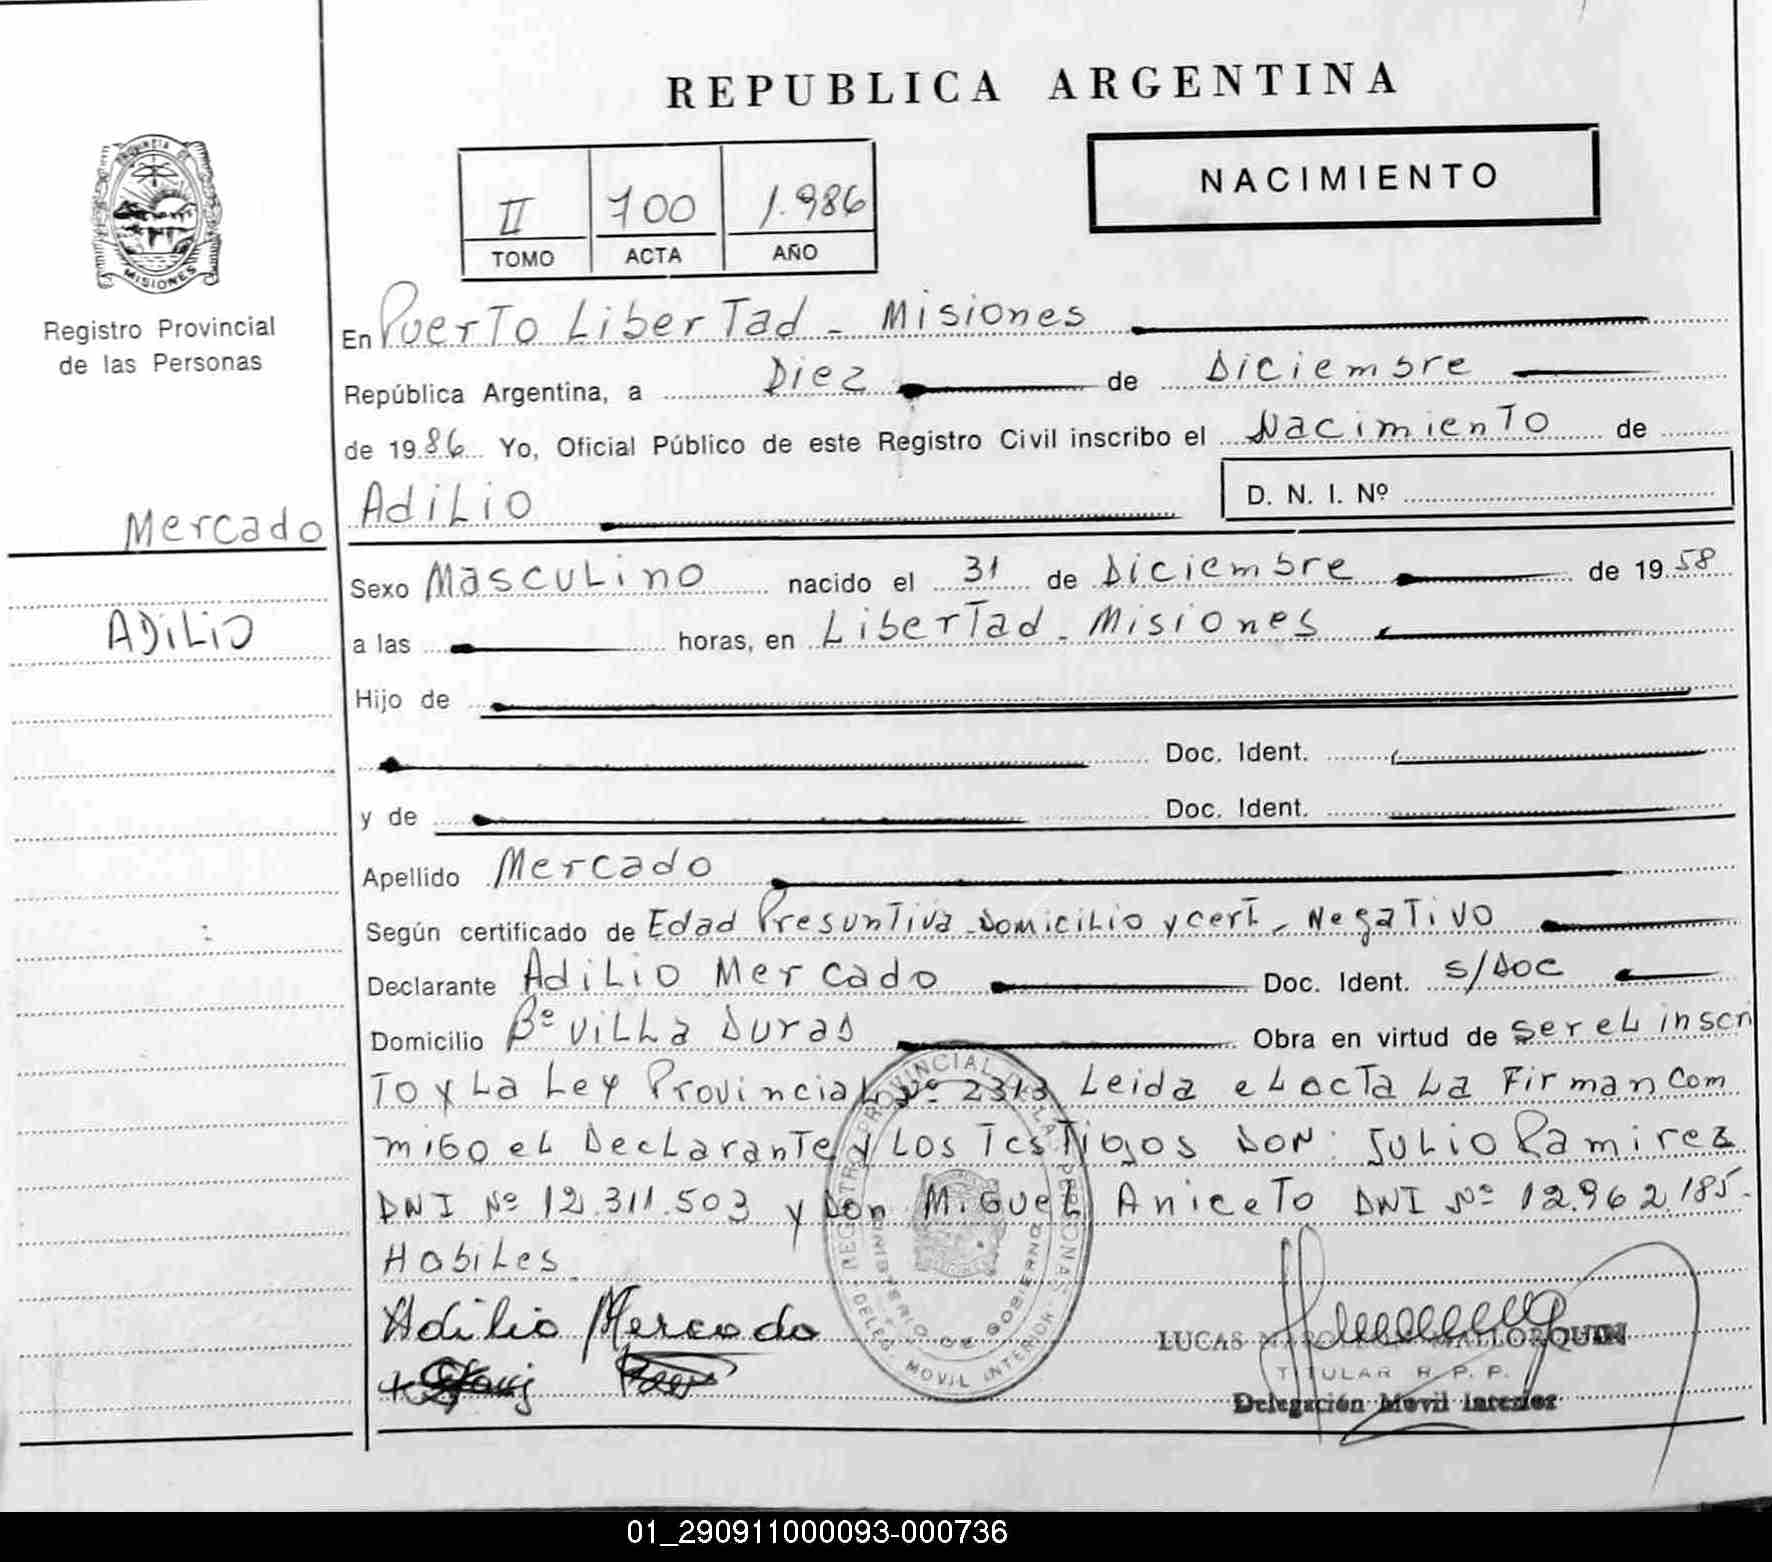 REPUBLICA ARGENTINA
PROVINCIA DE
MISIONES
Registro Provincial
de las Personas
NACIMIENTO
II 100 1.986
TOMO ACTA AÑO
En Puerto Libertad - Misiones
República Argentina, a Diez de Diciembre
de 1986 Yo, Oficial Público de este Registro Civil inscribo el Nacimiento de
Mercado Adilio D. N. I. Nº
Sexo Masculino nacido el 31 de Diciembre de 1958
Adilio
a las horas, en Libertad - Misiones
Hijo de
Doc. Ident.
y de Doc. Ident.
Apellido Mercado
Según certificado de Edad Presuntiva - Domicilio y cert - Negativo
Declarante Adilio Mercado Doc. Ident. s/Doc
Domicilio Bº Villa Duras Obra en virtud de ser el inscri
to y La Ley Provincial Nº 2313 Leida el acta La Firman Com
migo el Declarante y Los Testigos Don: Julio Ramirez
DNI Nº 12.311.503 y Don Miguel Aniceto DNI Nº 12.962.185.
Habiles
REGISTRO PROVINCIAL DE LAS PERSONAS
MINISTERIO DE GOBIERNO
DELEG. MOVIL INTERIOR
Adilio Mercado
LUCAS MALLORQUIN
TITULAR R. P. P.
Delegación Movil Interior
01_290911000093-000736